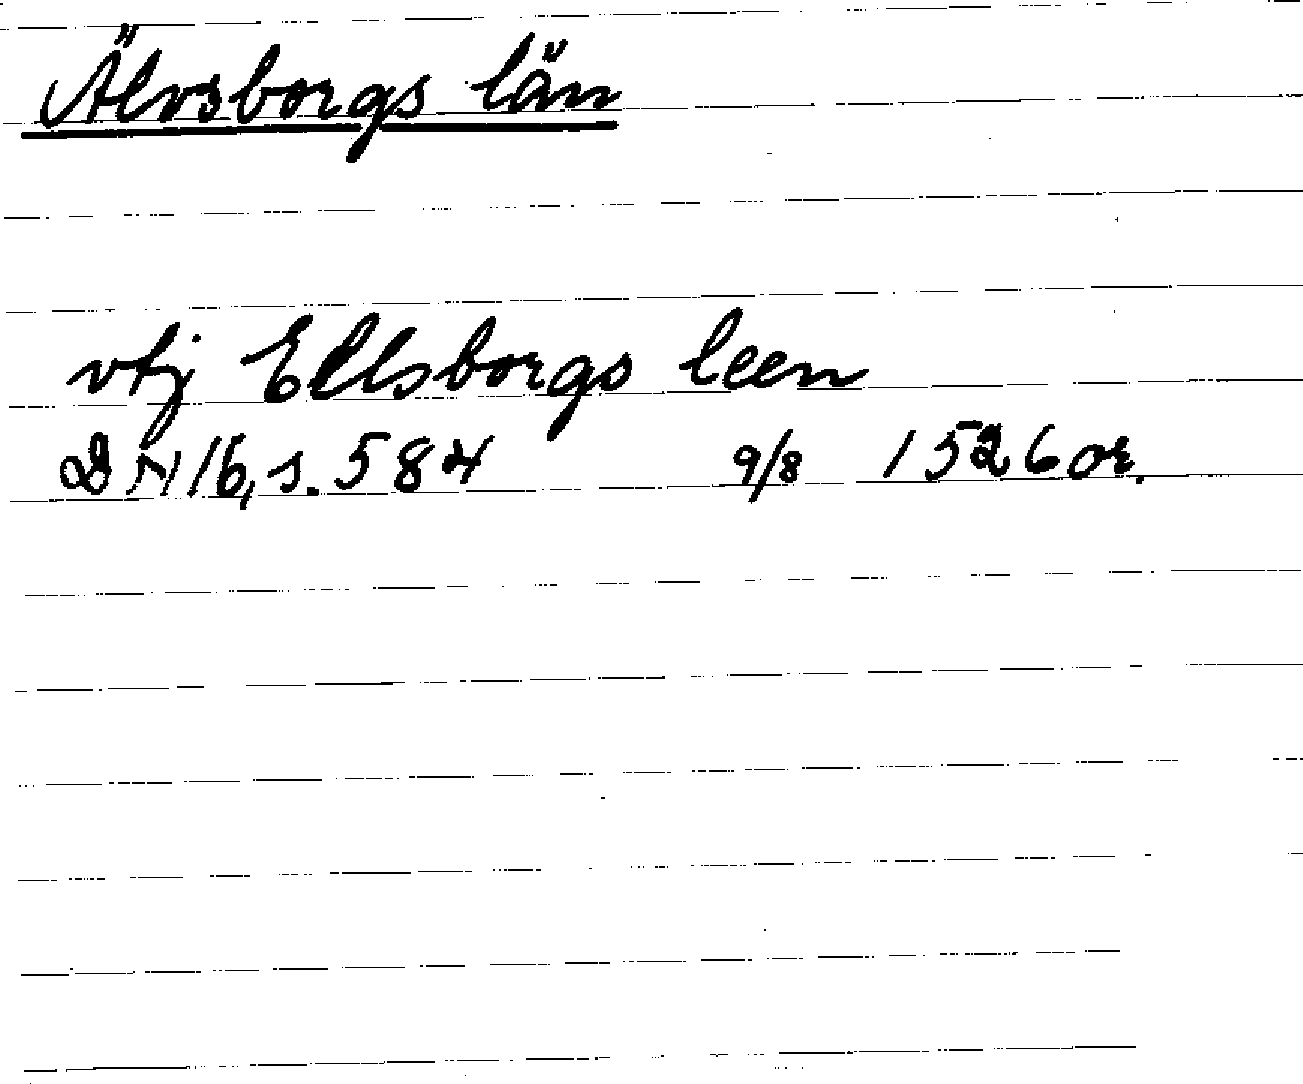 Älvsborgs län
vtj Ellsborgs leen
DN 16, s. 584 9/8 1526 or.